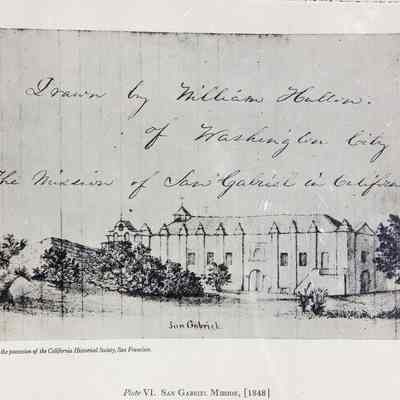 Drawn by William Hutton.
of Washington City
The Mission of San Gabriel in Californ
San Gabriel
the possession of the California Historical Society, San Francisco.
Plate VI. SAN GABRIEL MISSION, [1848]